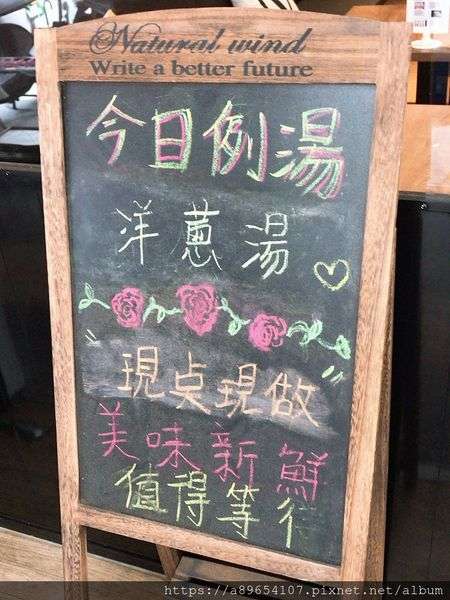 Natural wind
Write a better future
今日例湯
洋蔥湯
現点現做
美味新鮮
值得等待
https://a89654107.pixnet.net/album